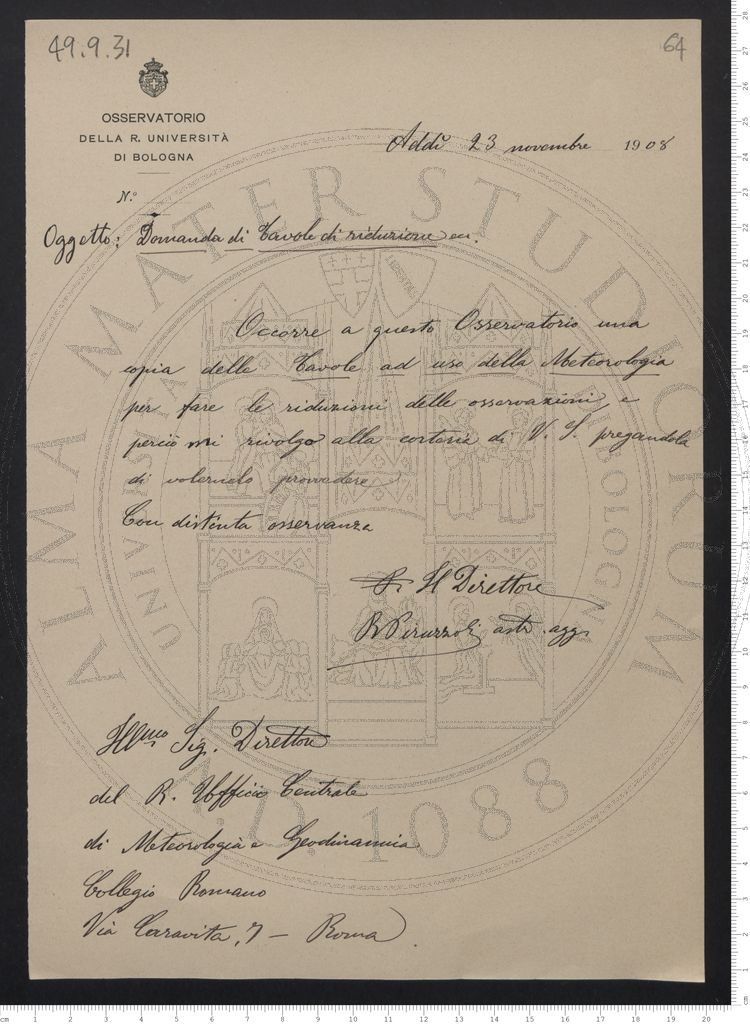 49.9.31
64
OSSERVATORIO
DELLA R. UNIVERSITÀ
DI BOLOGNA
Addì 23 novembre 1908
N.°
Oggetto: Domanda di Tavole di riduzione ecc.
Occorre a questo Osservatorio una
copia delle Tavole ad uso della Meteorologia
per fare le riduzioni delle osservazioni, e
perciò mi rivolgo alla cortesia di V. S. pregandola
di volermelo provvedere.
Con distinta osservanza
Il Direttore
astr. agg.
Illmo Sig. Direttore
del R. Ufficio Centrale
di Meteorologia e Geodinamica
Collegio Romano
Via Caravita, 7 — Roma
ALMA MATER STUDIORUM
A.D. 1088